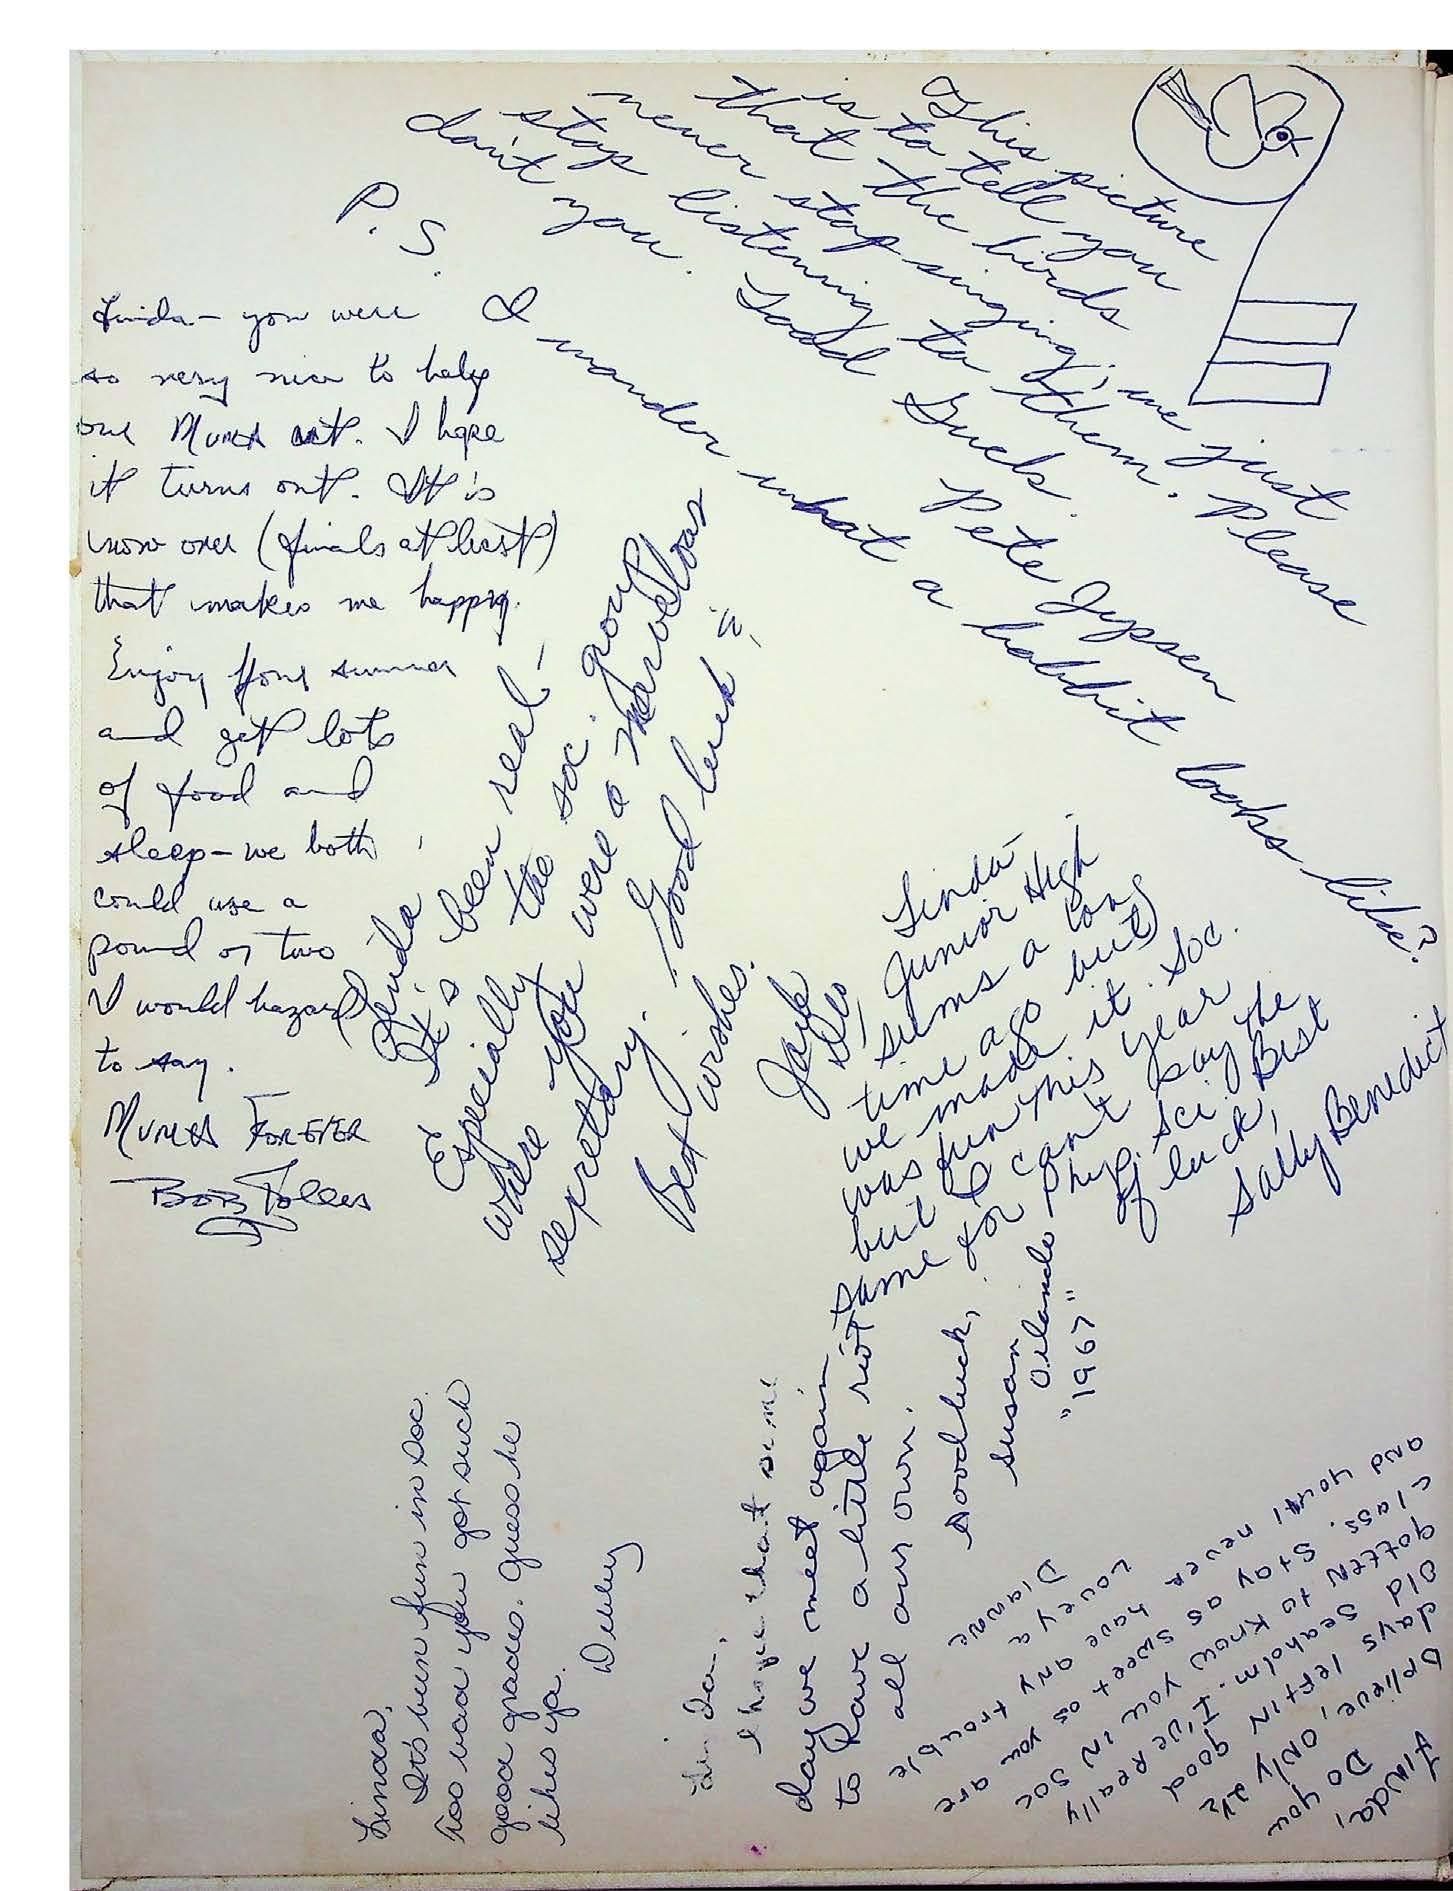 This picture
is to tell you
that the birds
never stop singing; we just
stop listening to them. Please
don't you. Good Luck.
Pete Jepsen
P.S. I wonder what a hobbit looks like?
Linda - you were
so very nice to help
our out. I hope
it turns out. It is
now over (finals at least)
that makes me happy.
Enjoy your summer
and get lots
of food and
sleep - we both
could use a
pound or two
I would hazard
to say.
Forever
Bob
Linda
It's been real -
Especially the soc. group
where you were a marvelous
secretary. Good luck
Best wishes.
Linda -
Junior High
seems a long
time ago but
we made it. Soc.
was fun this year
but I can't say the
same for phy. sci. Best
of luck,
Sally Benedict
Linda,
It's been fun in Soc.
Too bad you got such
good grades. Guess he
likes ya.
Debby
I hope that some
day we meet again
to have a little riot
all our own.
Good luck,
Susan
Orlando
"1967"
Linda,
Do you
believe, only 2½
days left in good
old Seaholm. I've really
gotten to know you in Soc
class. Stay as sweet as you are
and you'll never have any trouble
Love ya
Dianne